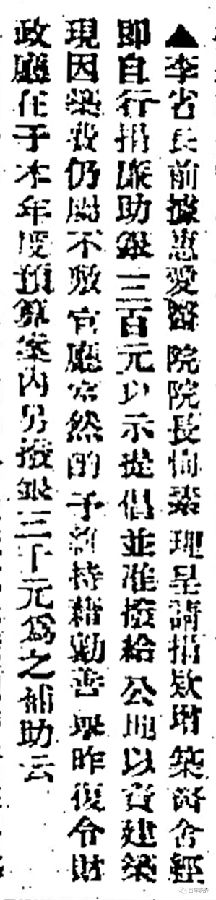 ▲李省長前據惠愛醫院院長恂嘉理呈請捐欵增築病舍經
即自行捐廉助銀三百元以示提倡並准撥給公地以資建築
現因築費仍屬不敷官廳然予維持藉勷善舉昨復令財
政廳在于本年度預算案內另撥銀三千元爲之補助云